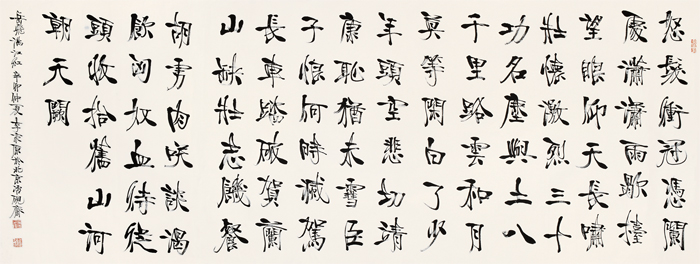 怒髮衝冠憑闌
處瀟瀟雨歇擡
望眼仰天長嘯
壯懷激烈三十
功名塵與土八
千里路雲和月
莫等閑白了少
年頭空悲切靖
康恥猶未雪臣
子恨何時滅駕
長車踏破賀蘭
山缺壯志饑餐
胡虜肉咲談渴
飲匈奴血待從
頭收拾舊山河
朝天闕
岳飛滿江紅 辛卯仲夏李